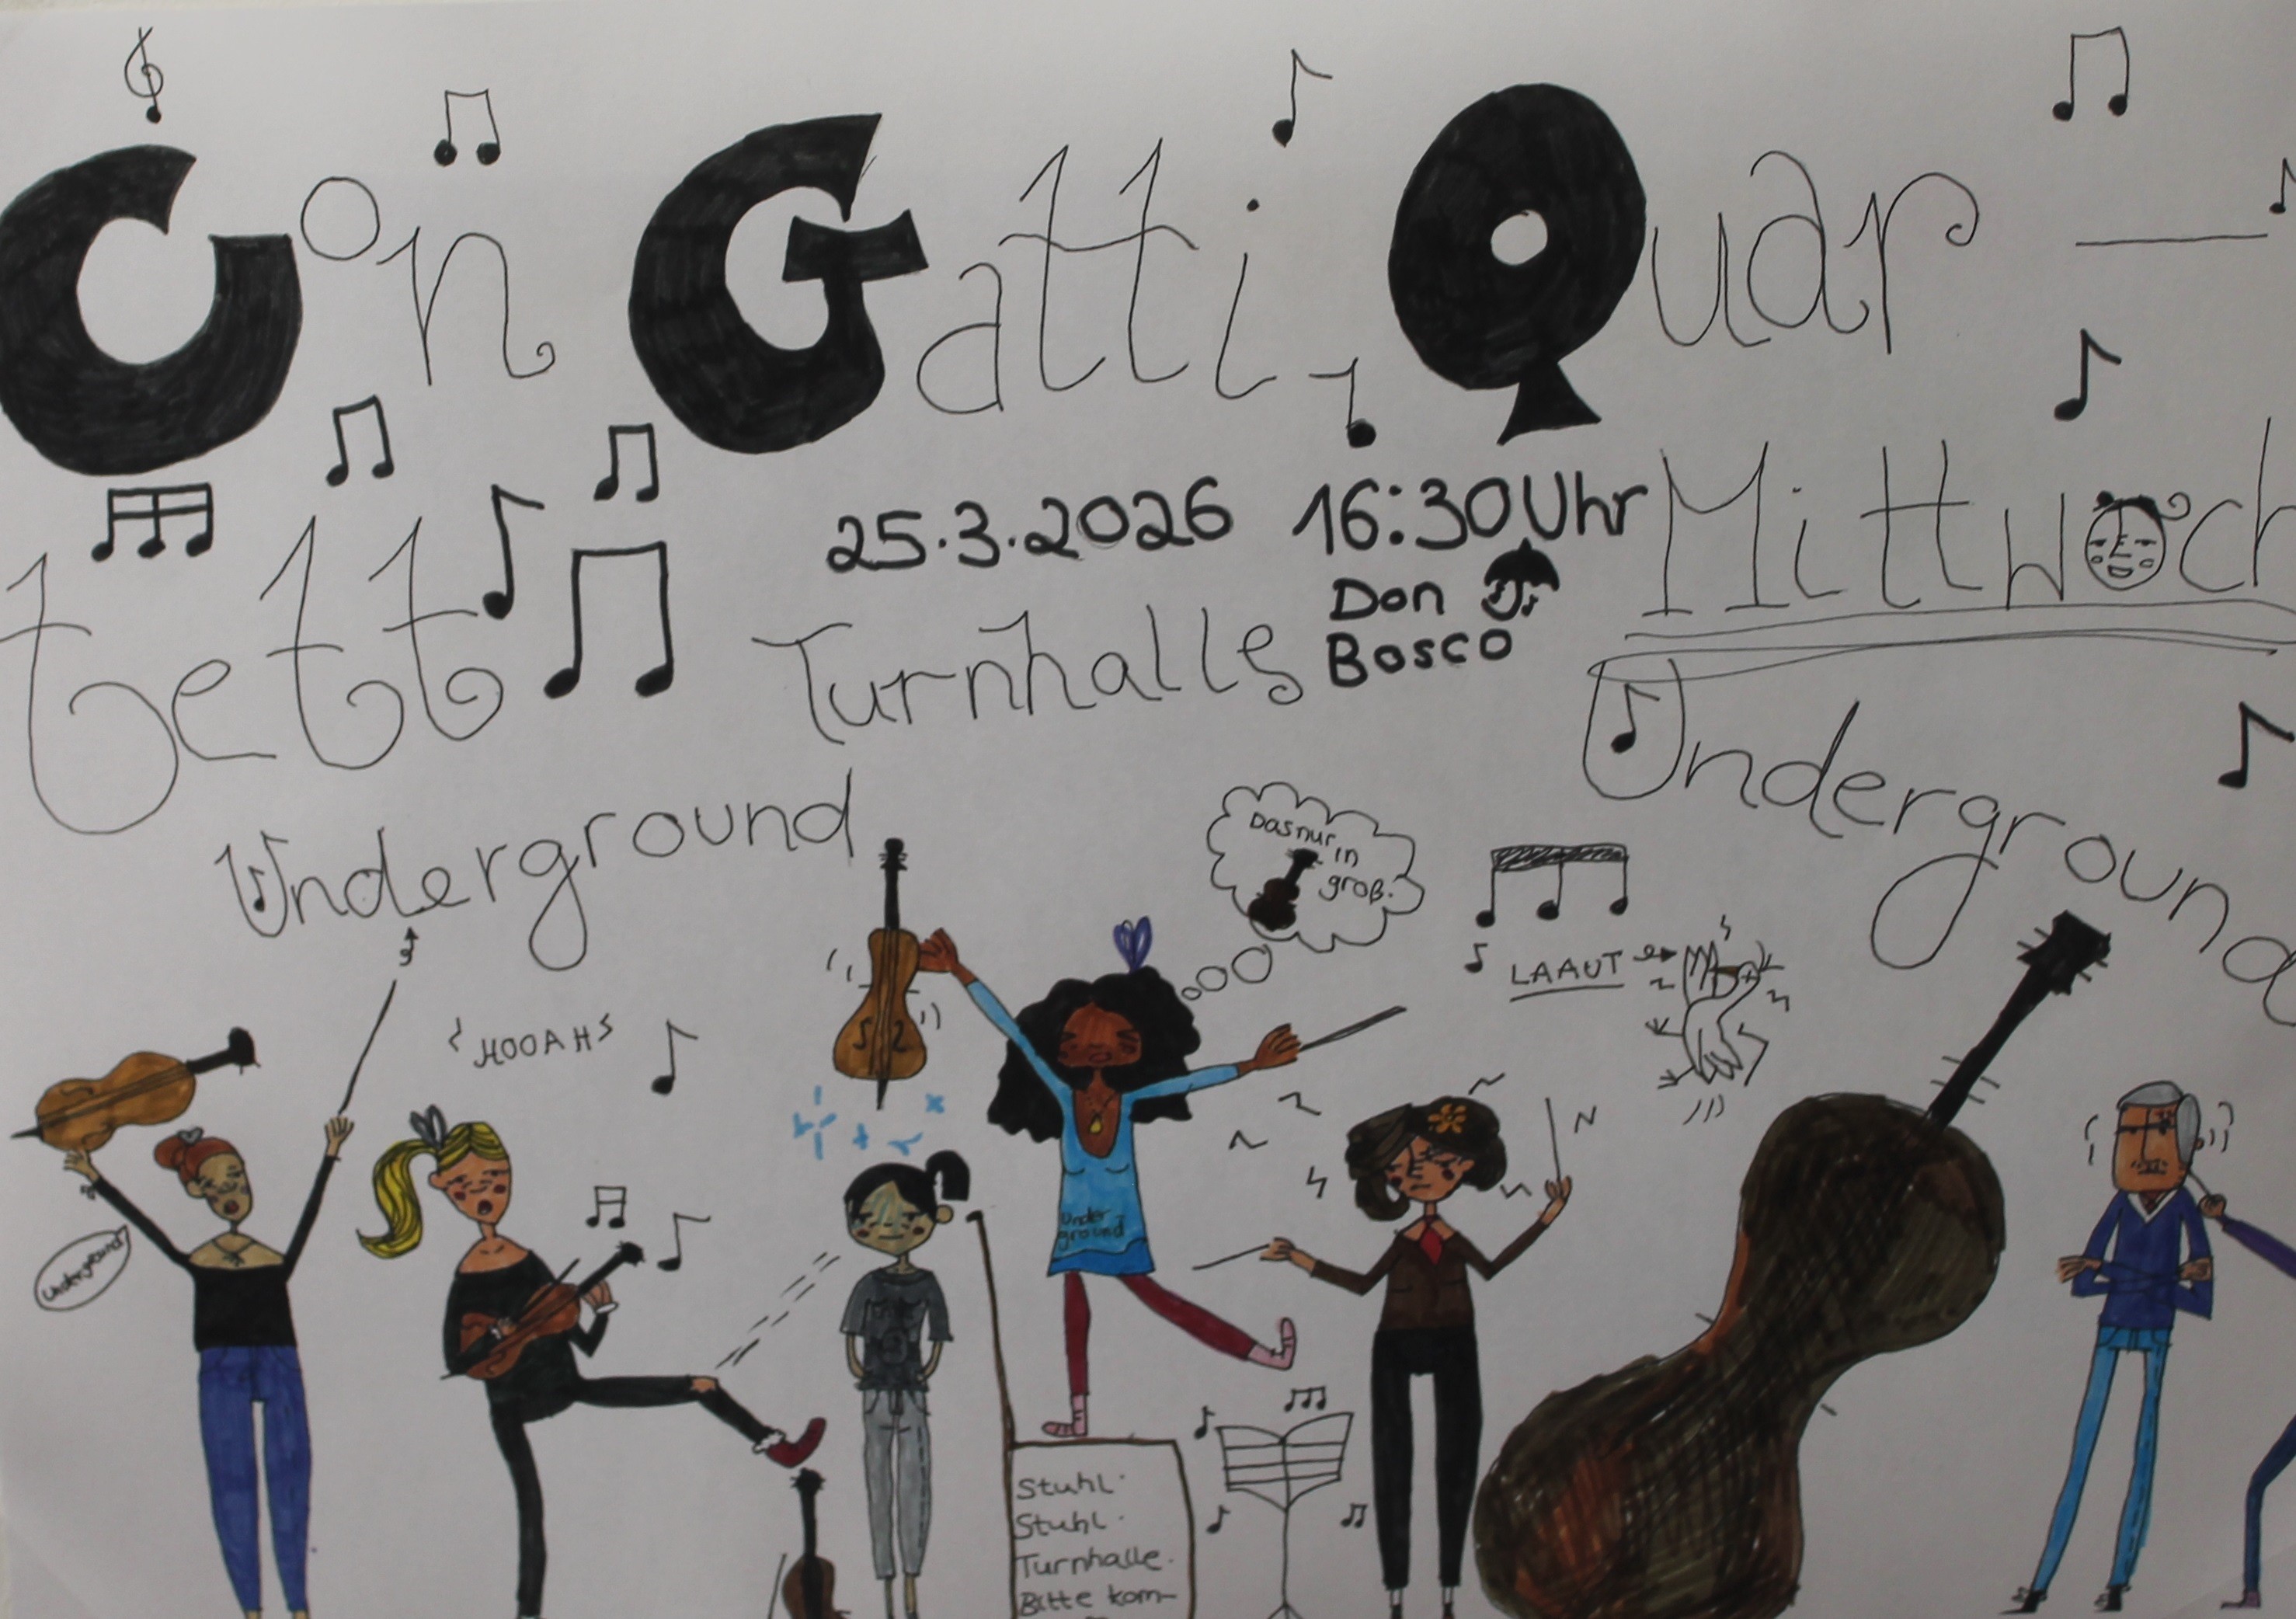 Con Gatti Quar —
tett
25.3.2026 16:30 Uhr
Mittwoch
Turnhalle
Don
Bosco
Underground
Underground
Das nur
in
groß.
LAAUT
HOOAH
Underground
Under
ground
Stuhl.
Stuhl.
Turnhalle.
Bitte kom-